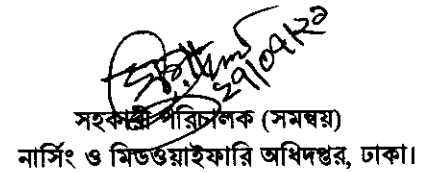 ২৭/০৭/২৩
সহকারী পরিচালক (সমন্বয়)
নার্সিং ও মিডওয়াইফারি অধিদপ্তর, ঢাকা।